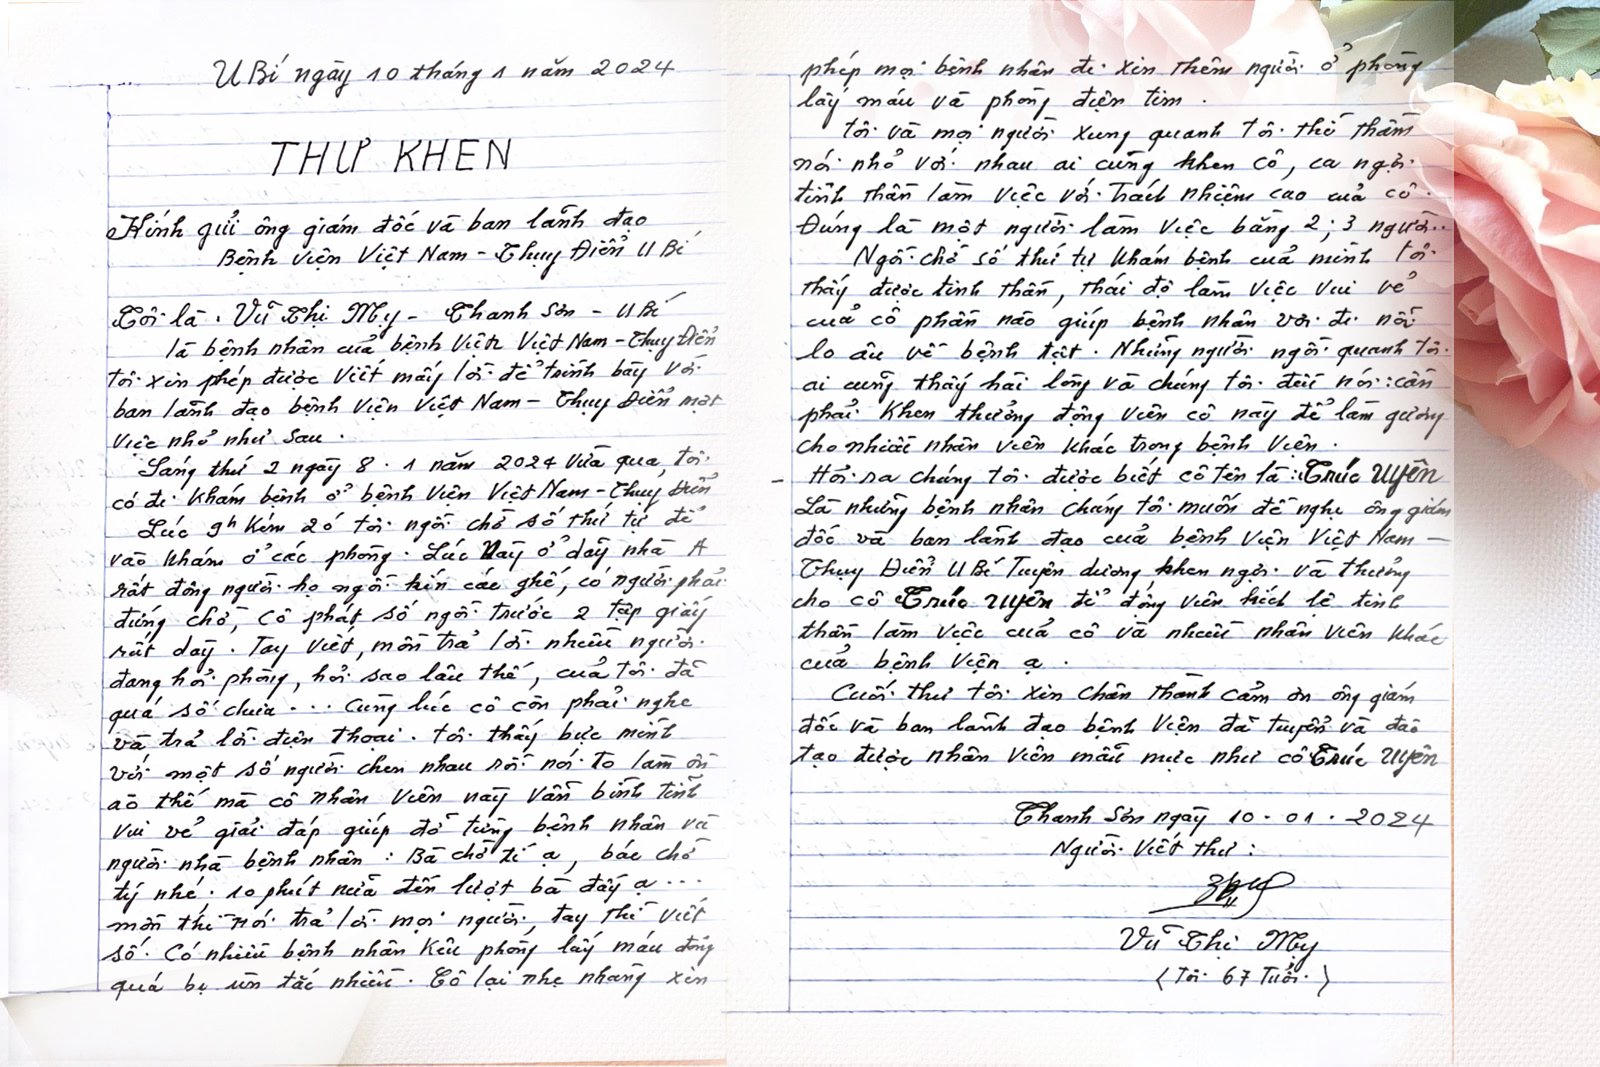 U Bí ngày 10 tháng 1 năm 2024
THƯ KHEN
Kính gửi ông giám đốc và ban lãnh đạo
Bệnh viện Việt Nam - Thụy Điển U Bí
Tôi là : Vũ Thị Mỵ - Thanh Sơn - U Bí
là bệnh nhân của bệnh viện Việt Nam - Thụy Điển
tôi xin phép được viết mấy lời để trình bày với
ban lãnh đạo bệnh viện Việt Nam - Thụy Điển một
việc nhỏ như sau .
Sáng thứ 2 ngày 8 . 1 năm 2024 vừa qua, tôi
có đi khám bệnh ở bệnh viện Việt Nam - Thụy Điển
Lúc 9h kém 20 tôi ngồi chờ số thứ tự để
vào khám ở các phòng . Lúc này ở dãy nhà A
rất đông người họ ngồi kín các ghế, có người phải
đứng chờ, cô phát số ngồi trước 2 tập giấy
rất dày . Tay viết, mồm trả lời nhiều người
đang hỏi phòng, hỏi sao lâu thế, của tôi đã
quá số chưa . . . Cùng lúc cô còn phải nghe
và trả lời điện thoại . tôi thấy bực mình
với một số người chen nhau rồi nói to làm ồn
ào thế mà cô nhân viên này vẫn bình tĩnh
vui vẻ giải đáp giúp đỡ từng bệnh nhân và
người nhà bệnh nhân : Bà chờ tí ạ, bác chờ
tý nhé ; 10 phút nữa đến lượt bà đấy ạ . . .
mồm thì nói trả lời mọi người, tay thì viết
số . Có nhiều bệnh nhân kêu phòng lấy máu đông
quá bị ùn tắc nhiều . Cô lại nhẹ nhàng xin
phép mọi bệnh nhân đi xin thêm người ở phòng
lấy máu và phòng điện tim .
tôi và mọi người xung quanh tôi thì thầm
nói nhỏ với nhau ai cũng khen cô, ca ngợi
tinh thần làm việc với trách nhiệm cao của cô .
Đúng là một người làm việc bằng 2 ; 3 người..
Ngồi chờ số thứ tự khám bệnh của mình tôi
thấy được tinh thần, thái độ làm việc vui vẻ
của cô phần nào giúp bệnh nhân vơi đi nỗi
lo âu về bệnh tật . Những người ngồi quanh tôi
ai cũng thấy hài lòng và chúng tôi đều nói : cần
phải khen thưởng động viên cô này để làm gương
cho nhiều nhân viên khác trong bệnh viện .
- Hỏi ra chúng tôi được biết cô tên là : Trúc Uyên
Là những bệnh nhân chúng tôi muốn đề nghị ông giám
đốc và ban lãnh đạo của bệnh viện Việt Nam -
Thụy Điển U Bí Tuyên dương, khen ngợi và thưởng
cho cô Trúc Uyên để động viên kích lệ tinh
thần làm việc của cô và nhiều nhân viên khác
của bệnh viện ạ .
Cuối thư tôi xin chân thành cảm ơn ông giám
đốc và ban lãnh đạo bệnh viện đã tuyển và đào
tạo được nhân viên mẫu mực như cô Trúc Uyên
Thanh Sơn ngày 10 . 01 . 2024
Người viết thư :
Vũ Thị Mỵ
(Tôi 67 tuổi)